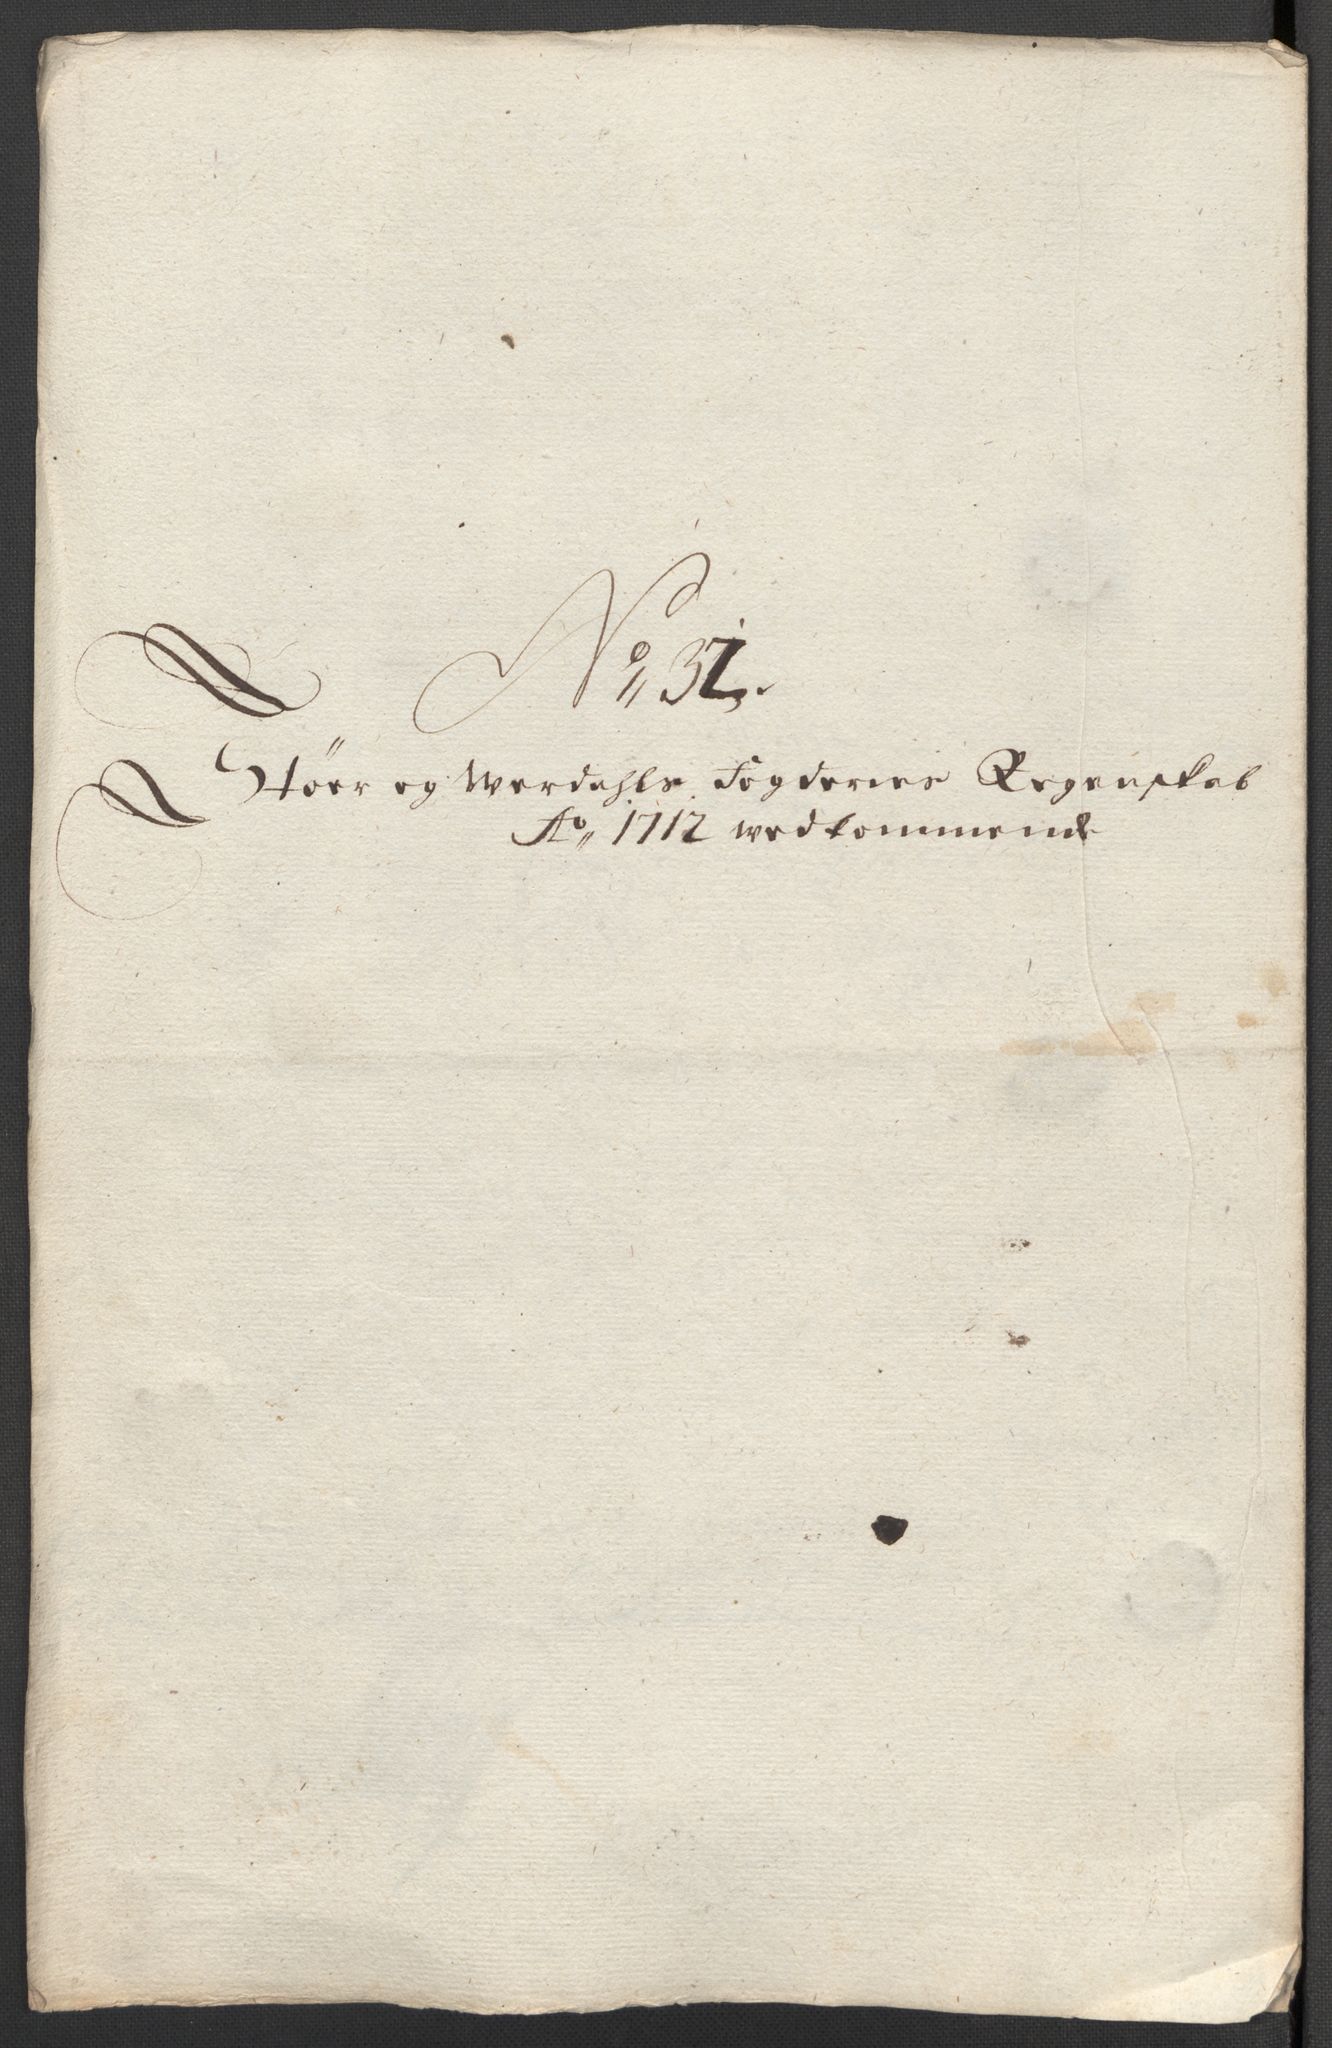 No 32.
Stöer og Werdahls Fogderies Regenskab
Ao 1712 wedkommende